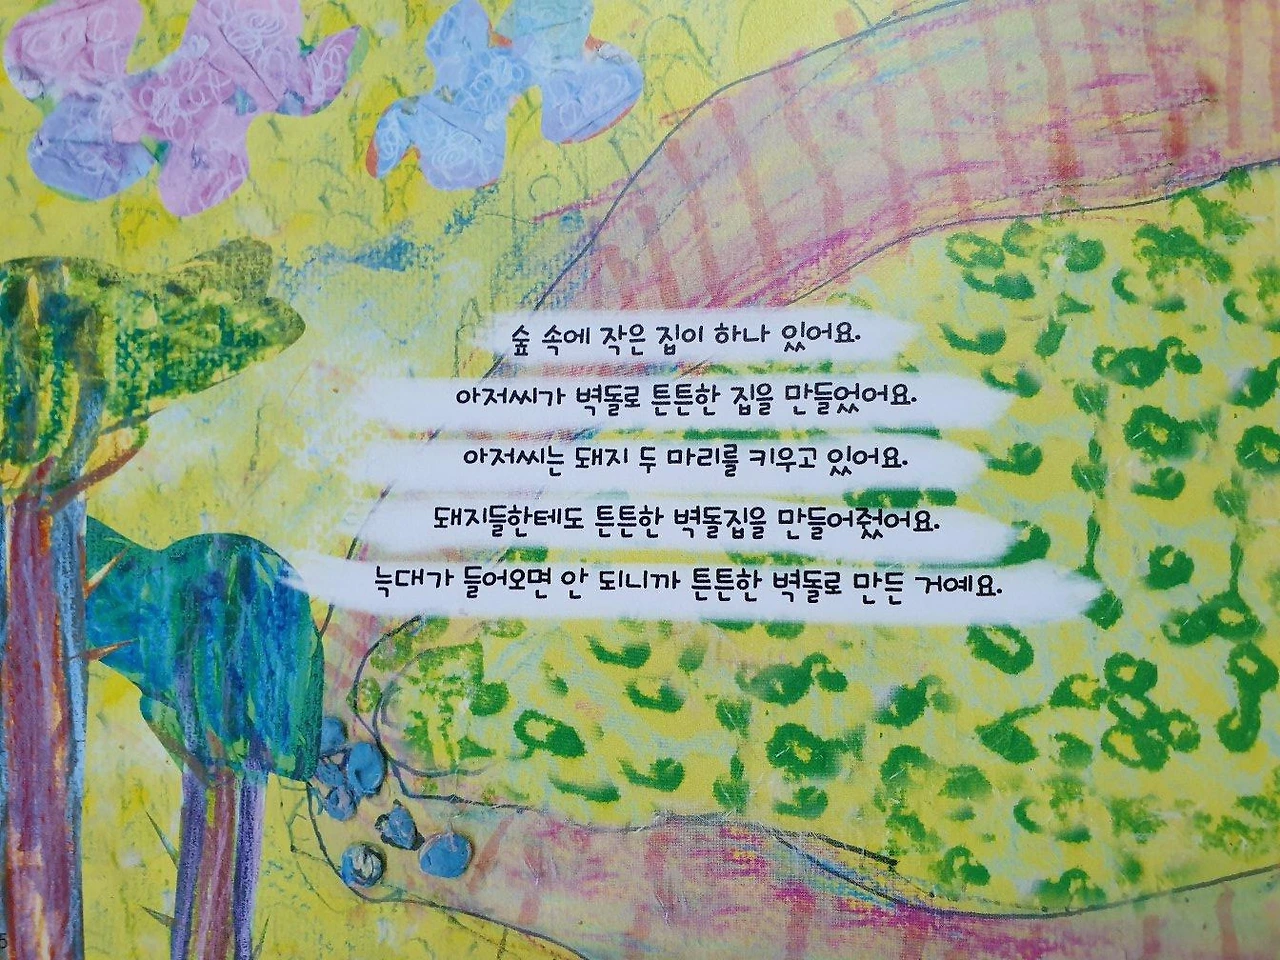 숲 속에 작은 집이 하나 있어요.
아저씨가 벽돌로 튼튼한 집을 만들었어요.
아저씨는 돼지 두 마리를 키우고 있어요.
돼지들한테도 튼튼한 벽돌집을 만들어줬어요.
늑대가 들어오면 안 되니까 튼튼한 벽돌로 만든 거예요.
5